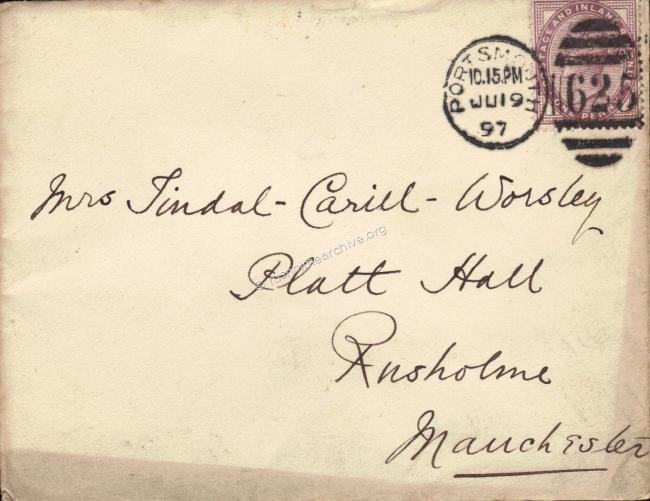 PORTSMOUTH
10.15.PM
JU19
97
POSTAGE AND INLAND
ONE PENNY
62
Mrs Tindal-Carill-Worsley
Platt Hall
Rusholme
Manchester
rusholmearchive.org